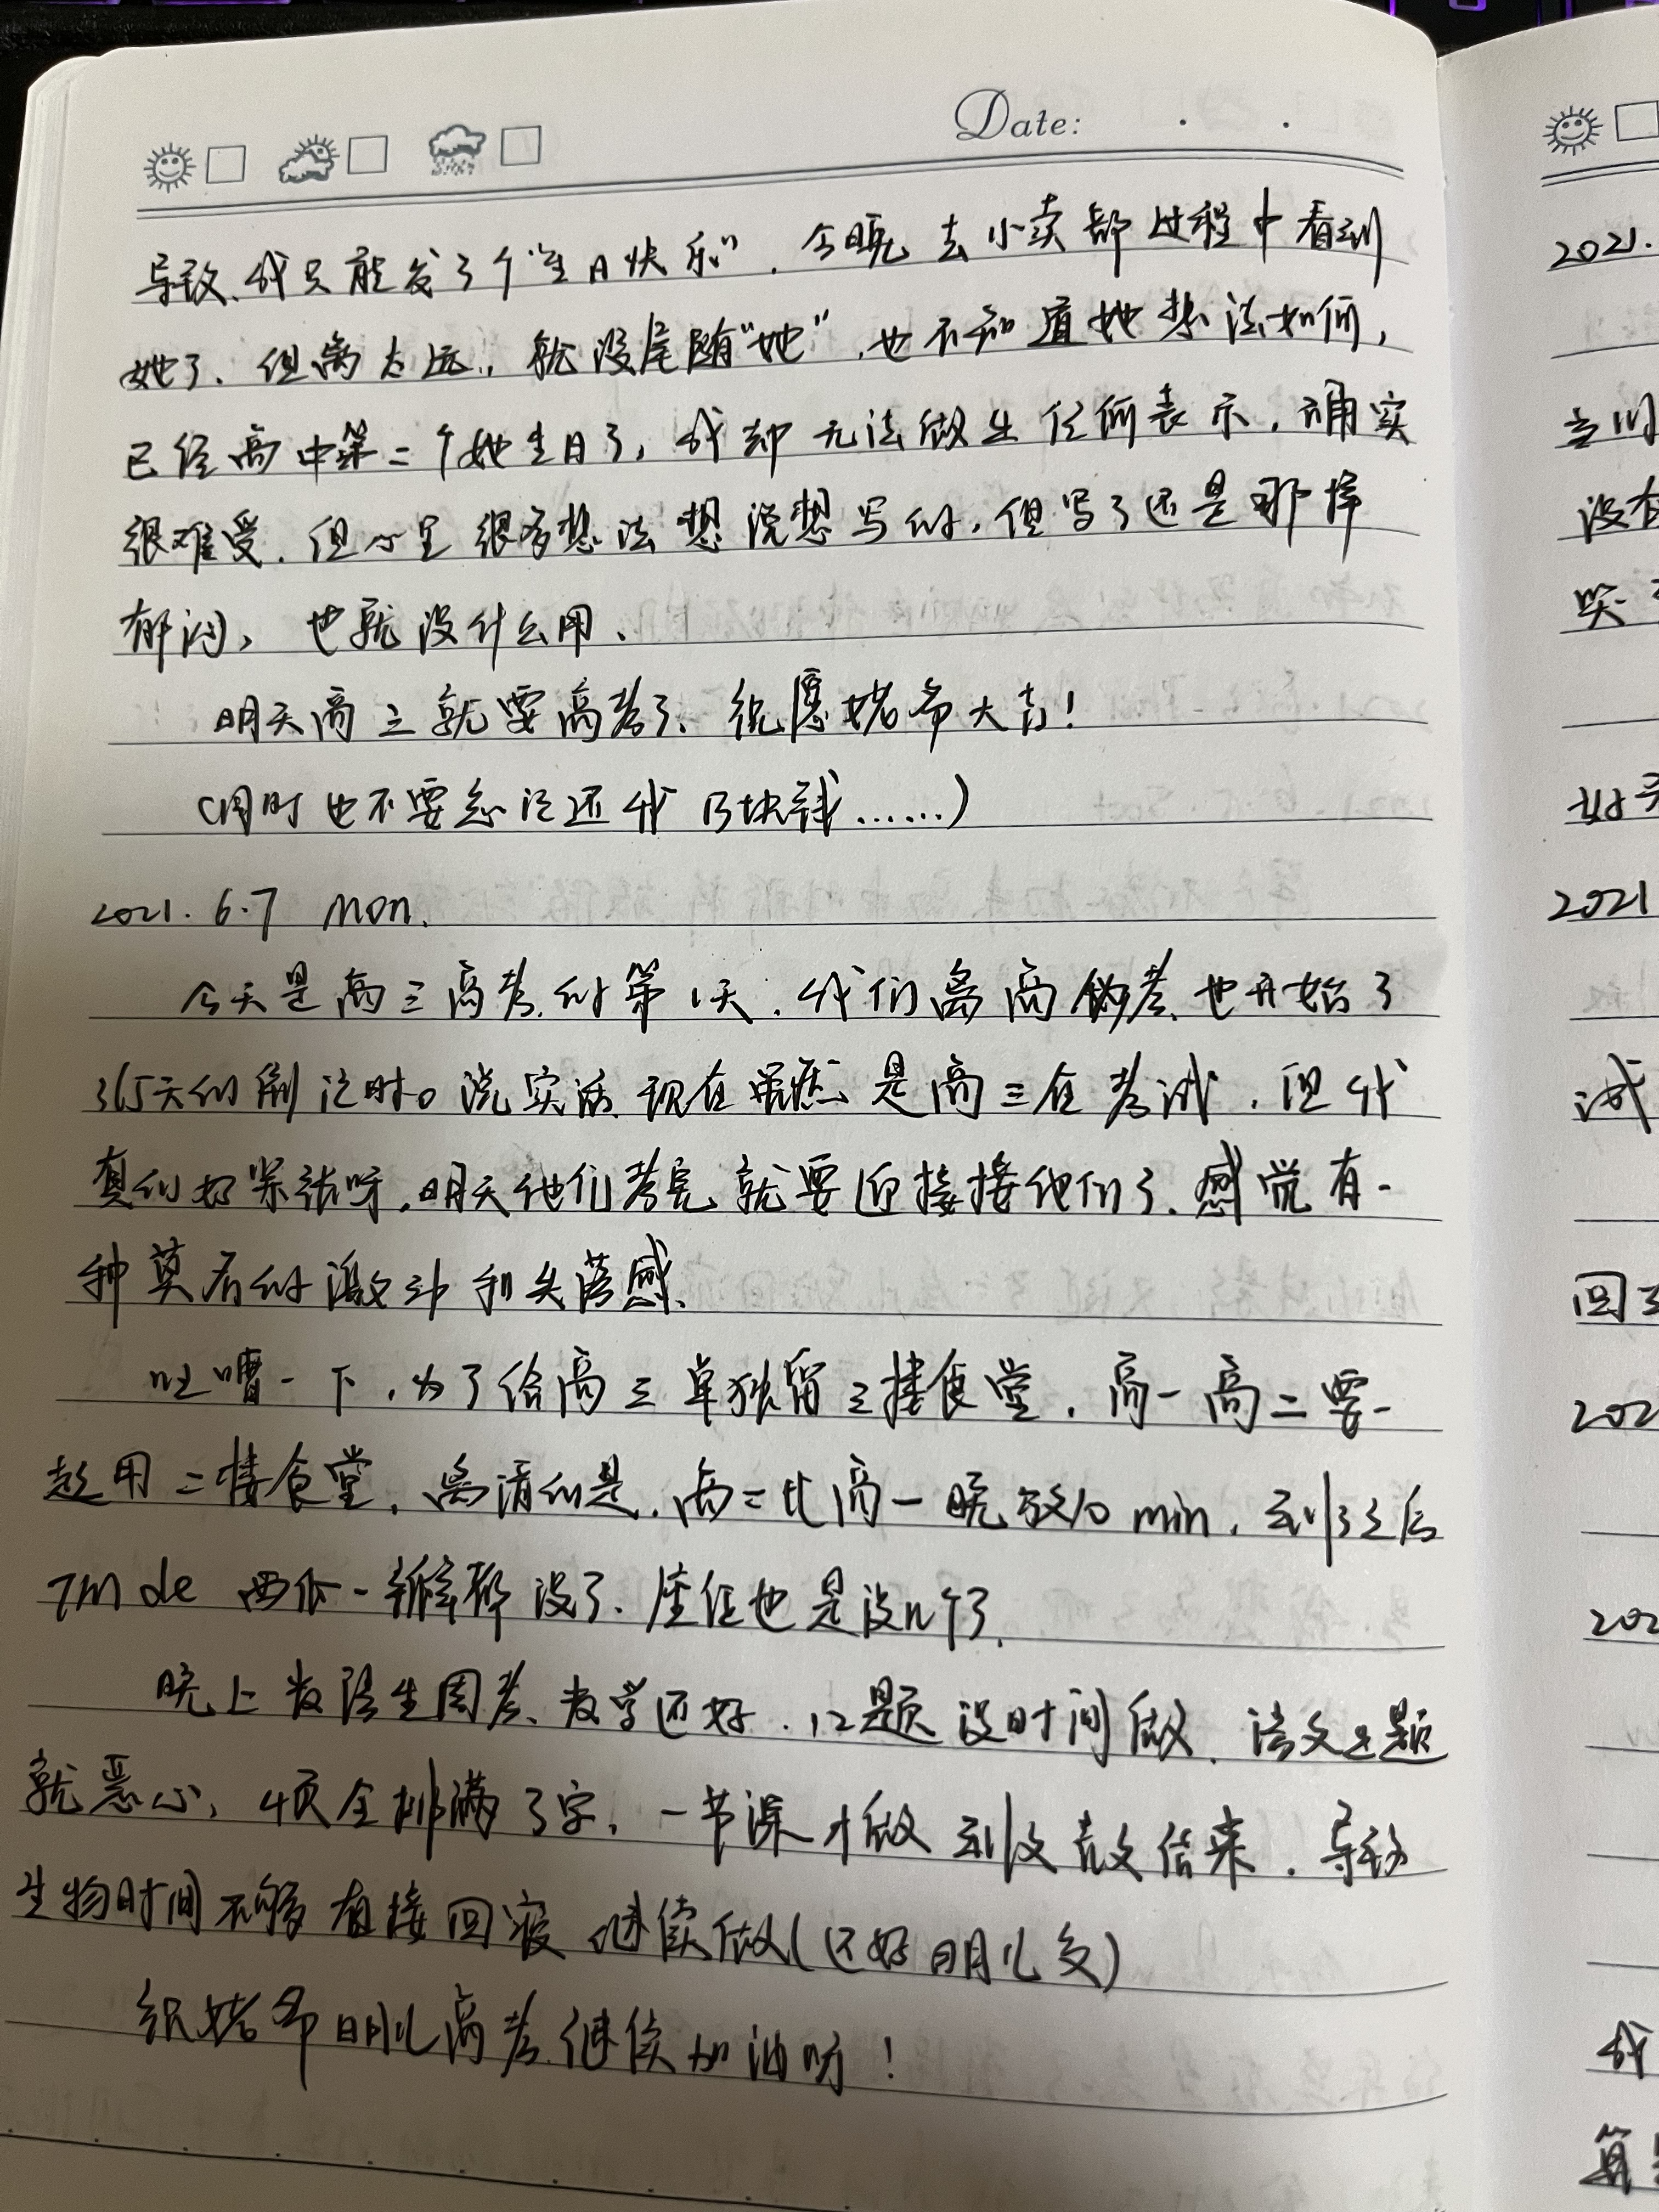 Date:
导致我只能发了个“生日快乐”.今晚去小卖部过程中看到
她了.但离太远,就没尾随“她”.也不知道她想法如何,
已经高中第二个她生日了,我却无法做出任何表示.确实
很难受.但心里很多想法想说想写的.但写了还是那样
郁闷,也就没什么用.
明天高三就要高考了.祝愿姥爷大吉!
(同时也不要忘记还我13块钱……)
2021.6.7 Mon.
今天是高三高考的第1天.我们离高考也开始了
365天的倒计时。说实话现在虽然是高三在考试.但我
真的好紧张呀.明天他们考完就要迎接接他们了.感觉有一
种莫名的激动和失落感.
吐嘈一下.为了给高三单独留三楼食堂.高一高二要一
起用二楼食堂.离谱的是.高二比高一晚放10 min.到了之后
TM de 西瓜一瓣都没了.座位也是没几个了.
晚上数语生周考.数学还好.12题没时间做.语文Ⅱ题
就恶心,4页全排满了字.一节课才做到文言文结束.导致
生物时间不够直接回寝继续做(还好明儿交)
祝姥爷明儿高考继续加油呀!
2021.
没有
2021
试
回
202
202
我